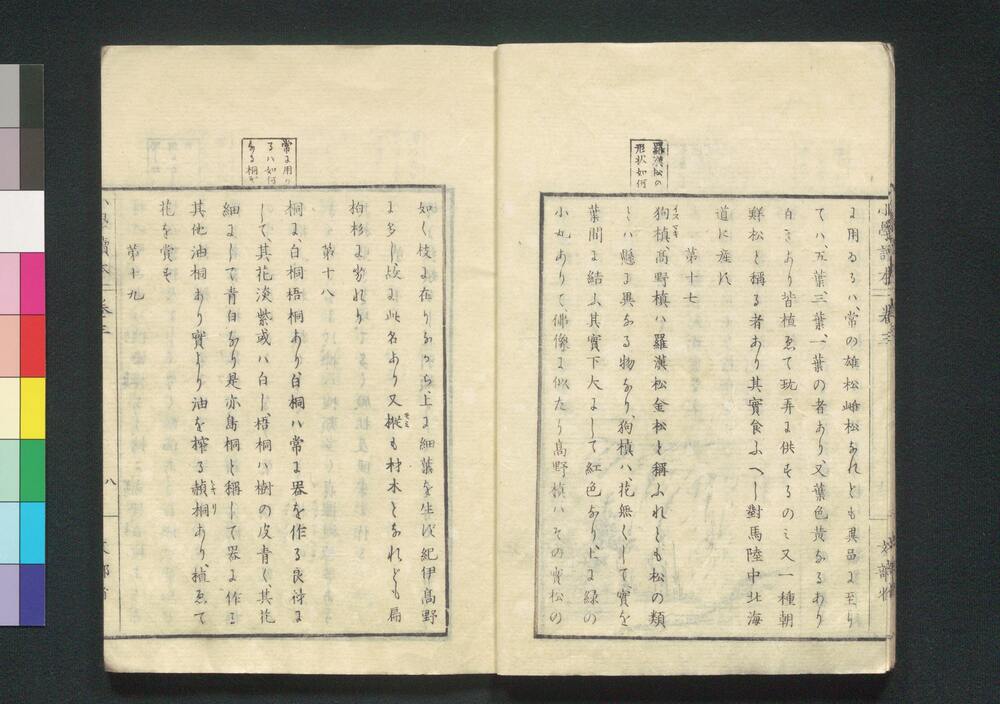 小學讀本 卷三
羅漢松の
形状如何
に用ゐるハ、常の雄松雌松なれとも異品に至り
てハ、五葉、三葉、一葉の者あり、又葉色黄なるあり
白きあり皆植ゑて玩弄に供するのミ又一種朝
鮮松と稱る者あり其實食ふへし對馬陸中北海
道に産す
第十七
狗槙、髙野槙ハ羅漢松金松と稱ふれとも松の類
とハ懸に異なる物なり、狗槙ハ、花無くして、實を
葉間に結ふ其實下大にして紅色なり上に緑の
小丸ありて、佛像に似たり髙野槙ハその實松の
如く枝に在りなから、上に細葉を生す紀伊髙野
に多し、故に此名あり又樅も材木となれども扁
栢杉に劣れり
常に用ゐ
るハ如何
なる桐ぞ
第十八
桐に、白桐梧桐あり、白桐ハ常に器を作る良材に
して、其花淡紫或ハ白し、梧桐ハ樹の皮青く、其花
細にして青白なり是亦烏桐と稱して器に作る
其他油桐あり實より油を搾る赬桐あり、植ゑて
花を賞す
第十九
八